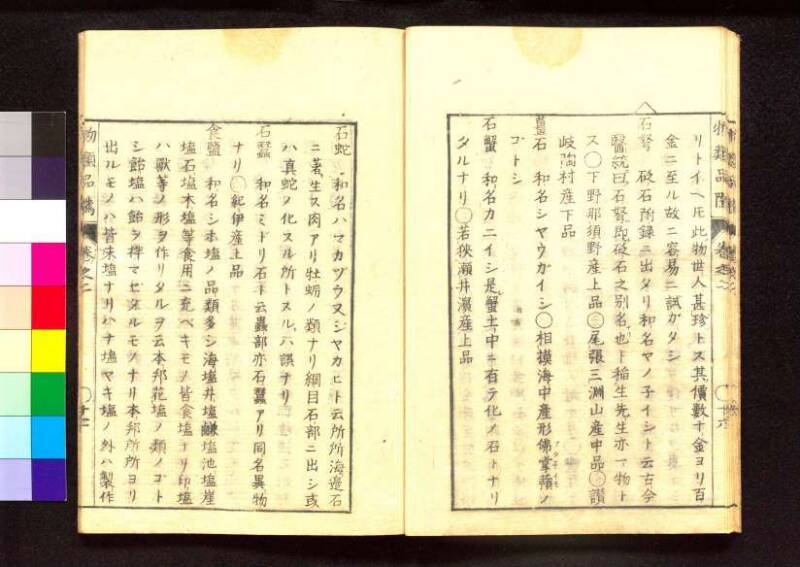 物類品隲 巻之二
リトイヘドモ此物世人甚珍トス其價數十金ヨリ百
金ニ至ル故ニ容易ニ試ガタシ
石弩 砭石附録ニ出タリ和名ヤノ子イシト云古今
醫統曰石弩既砭石之别名也ト稲生先生亦一物ト
ス〇下野那須野産上品〇尾張三淵山産中品〇讃
岐陶村産下品
石 和名シヤウガイシ〇相摸海中産形佛掌薯ノ
ゴトシ
石蟹 和名カニイシ是蟹土中ニ有テ化メ石トナリ
タルナリ〇若狹瀬井濱産上品
石蛇 和名ハマカヅウ又ジヤカヒト云所所海邉石
ニ著生ス肉アリ牡蛎ノ類ナリ綱目石部ニ出シ或
ハ真蛇ノ化スル所トスルハ誤ナリ
石蠶 和名ミドリ石ト云蟲部亦石蠶アリ同名異物
ナリ〇紀伊産上品
食鹽 和名シホ塩ノ品類多シ海塩井塩鹻塩池塩崖
塩石塩木塩等食用ニ充ベキモノ皆食塩ナリ印塩
ハ獸等ノ形ヲ作リタルヲ云本邦花塩ノ類ノゴト
シ飴塩ハ飴ヲ拌マゼタルモノナリ本邦所所ヨリ
出ルモノハ皆末塩ナリハナ塩ヤキ塩ノ外ハ製作
物類品隲 巻之二